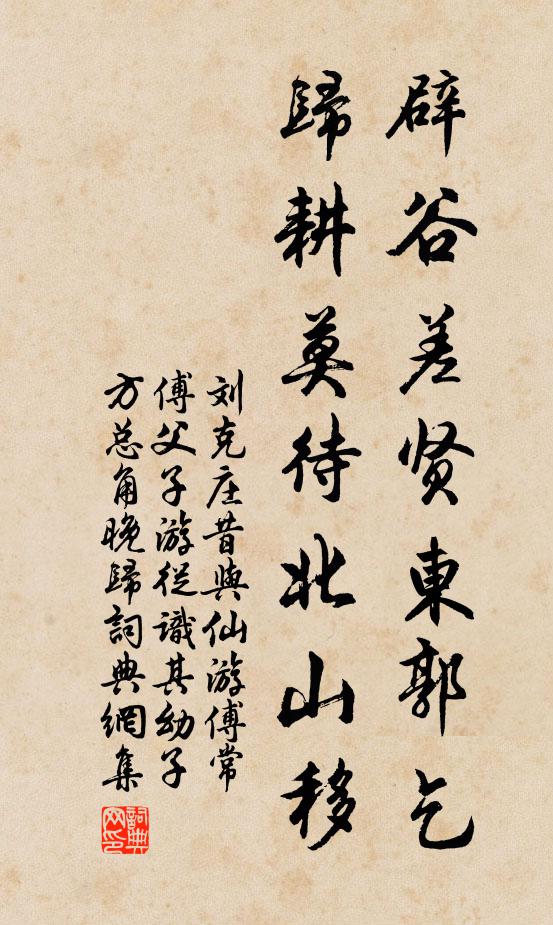 辟谷差贤東郭乞
歸耕莫待北山移
刘克庄昔與仙游傅常
傅父子游從識其幼子
方总角晚歸詞典網集
詞典网印